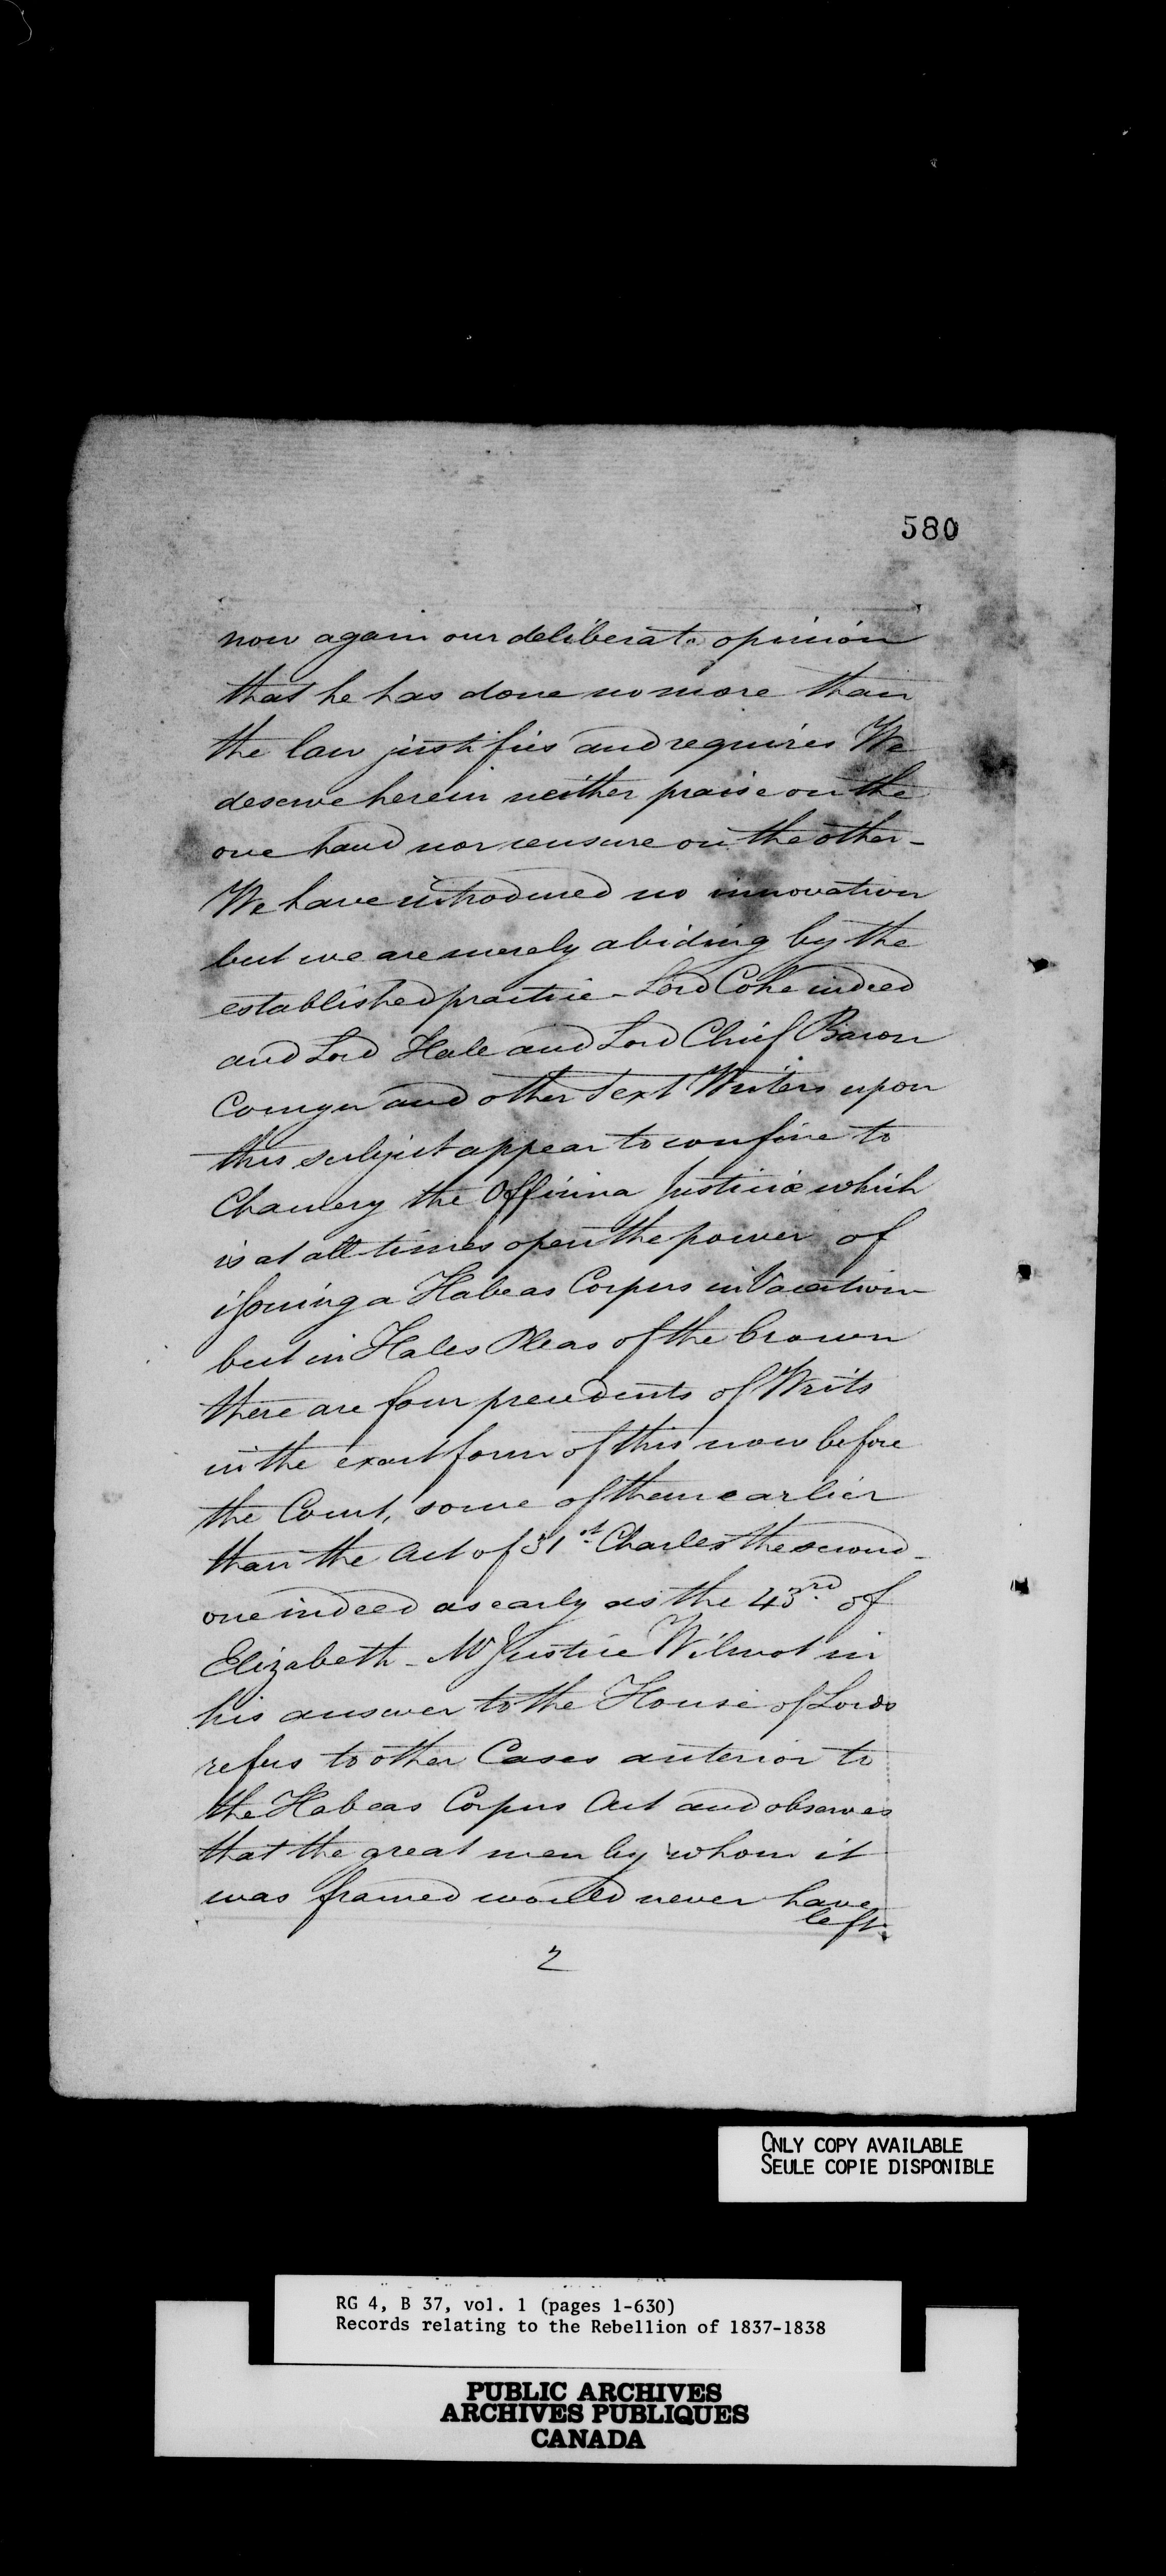 580
now again our deliberate opinion
that he has done no more than
the law justifies and requires We
deserve herein neither praise on the
one hand nor censure on the other -
We have introduced no innovation
but we are merely abiding by the
established practice - Lord Coke indeed
and Lord Hale and Lord Chief Baron
Comyn and other Text Writers upon
this subject appear to confine to
Chancery the Officina Justiciæ which
is at all times open the power of
issuing a Habeas Corpus in Vacation
but in Hales Pleas of the Crown
there are four precedents of Writs
in the exact form of this now before
the Court, some of them earlier
than the Act of 31st Charles the second -
one indeed as early as the 43rd of
Elizabeth - Mr Justice Wilmot in
his answer to the House of Lords
refers to other Cases anterior to
the Habeas Corpus Act and observes
that the great men by whom it
was framed would never have
left
2
ONLY COPY AVAILABLE
SEULE COPIE DISPONIBLE
RG 4, B 37, vol. 1 (pages 1-630)
Records relating to the Rebellion of 1837-1838
PUBLIC ARCHIVES
ARCHIVES PUBLIQUES
CANADA